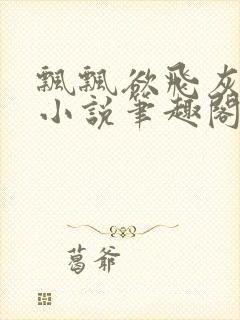 飄飄欲飛灰
小說筆趣閣
葛爺